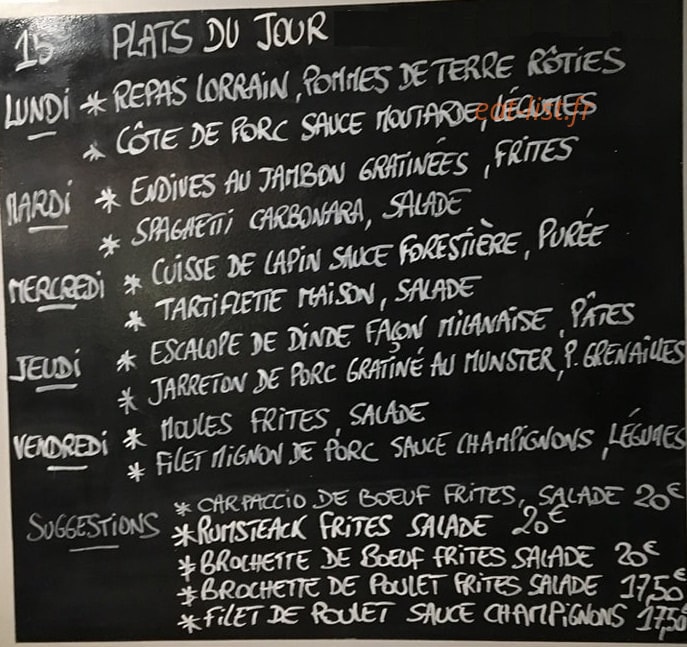 15 PLATS DU JOUR
LUNDI * REPAS LORRAIN, POMMES DE TERRE RÔTIES
* CÔTE DE PORC SAUCE MOUTARDE, LÉGUMES
eat-list.fr
MARDI * ENDIVES AU JAMBON GRATINÉES, FRITES
* SPAGHETTI CARBONARA, SALADE
MERCREDI * CUISSE DE LAPIN SAUCE FORESTIÈRE, PURÉE
* TARTIFLETTE MAISON, SALADE
JEUDI * ESCALOPE DE DINDE FAÇON MILANAISE, PÂTES
* JARRETON DE PORC GRATINÉ AU MUNSTER, P. GRENAILLES
VENDREDI * MOULES FRITES, SALADE
* FILET MIGNON DE PORC SAUCE CHAMPIGNONS, LÉGUMES
* CARPACCIO DE BOEUF FRITES, SALADE 20€
SUGGESTIONS * RUMSTEACK FRITES SALADE 20€
* BROCHETTE DE BOEUF FRITES SALADE 20€
* BROCHETTE DE POULET FRITES SALADE 17,50€
* FILET DE POULET SAUCE CHAMPIGNONS 17,50